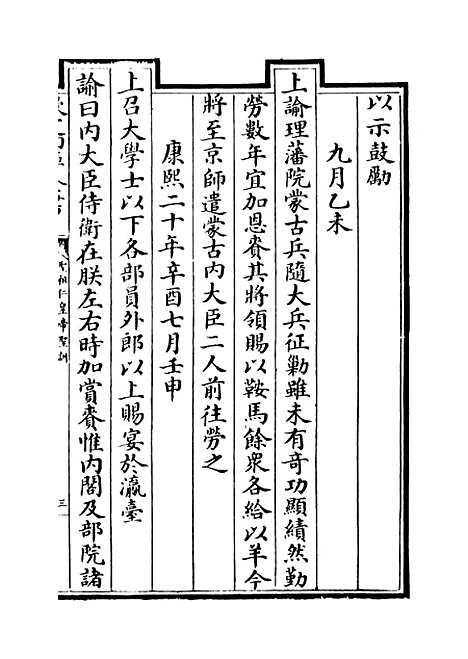 以示鼓勵
九月乙未
上諭理藩院蒙古兵隨大兵征勦雖未有奇功顯績然勤
勞數年宜加恩賚其將領賜以鞍馬餘衆各給以羊今
將至京師遣蒙古内大臣二人前往勞之
康熙二十年辛酉七月壬申
上召大學士以下各部員外郎以上賜宴於瀛臺
諭曰内大臣侍衛在朕左右時加賞賚惟内閣及部院諸
仁皇帝聖訓
三